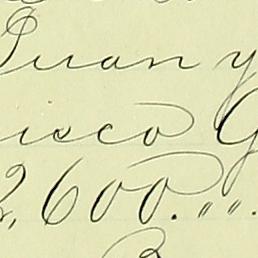 Juan y
isco G
2,600. „ „.
B